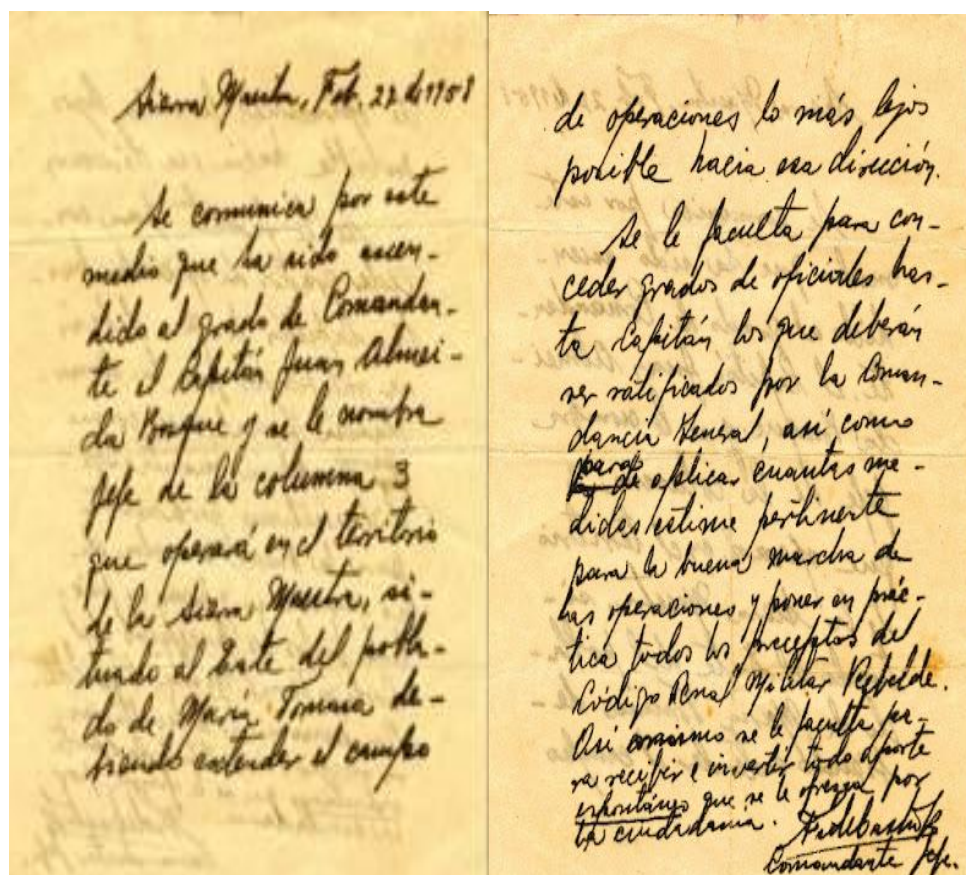 Sierra Maestra, Feb. 27 de 1958
Se comunica por este
medio que ha sido ascen-
dido al grado de Comandan-
te el Capitán Juan Almei-
da Bosque y se le nombra
Jefe de la columna 3
que operará en el territorio
de la Sierra Maestra, si-
tuado al Este del pobla-
do de María Tomasa de-
biendo extender el campo
de operaciones lo más lejos
posible hacia esa dirección.
Se le faculta para con-
ceder grados de oficiales has-
ta Capitán los que deberán
ser ratificados por la Coman-
dancia General, así como
para aplicar cuantas me-
didas estime pertinente
para la buena marcha de
las operaciones y poner en prác-
tica todos los preceptos del
Código Penal Militar Rebelde.
Así mismo se le faculta pa-
ra recibir e invertir todo aporte
espontáneo que se le ofrezca por
la ciudadanía. Fidel Castro R
Comandante Jefe.